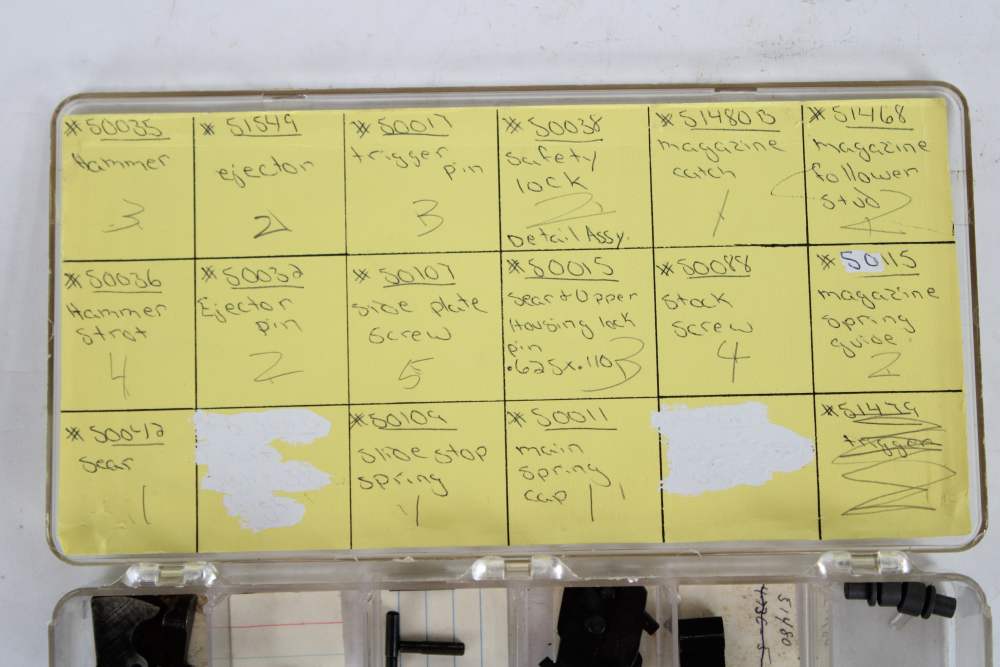 #50035
Hammer
3
#51549
ejector
2
#50017
trigger
pin
3
#50038
safety
lock
2
Detail Assy.
#51480B
magazine
catch
1
#51468
magazine
follower
stud
#50036
Hammer
strut
4
#50032
Ejector
pin
2
#50107
side plate
screw
5
#50015
Sear + Upper
Housing lock
pin
.625x.110
3
#50088
stock
screw
4
#50115
magazine
spring
guide
2
#50042
Sear
1
#50109
slide stop
spring
1
#50011
main
spring
cap
1
#51479
trigger
51480